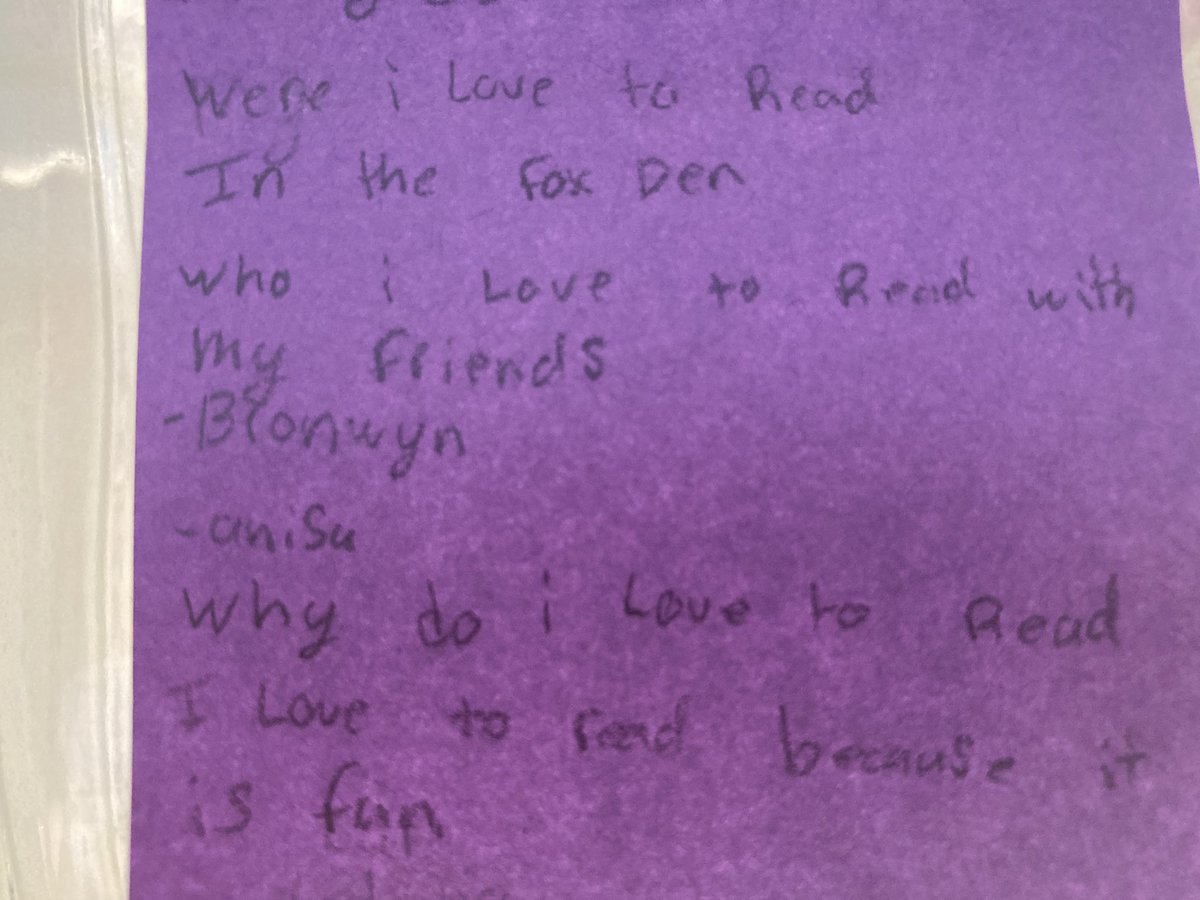 Were i Love to Read
In the Fox Den
who i Love to Read with
my Friends
-Bronwyn
-anisa
Why do i Love to Read
I Love to read because it
is fun